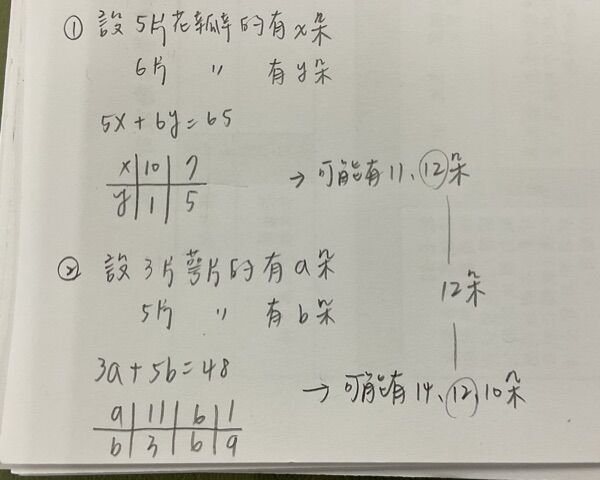 ① 設5片花瓣的有x朵
6片 〃 有y朵
5x+6y=65
x 10 7
y 1 5
→可能有11、12朵
12朵
② 設3片萼片的有a朵
5片 〃 有b朵
3a+5b=48
a 11 6 1
b 3 6 9
→可能有14、12、10朵